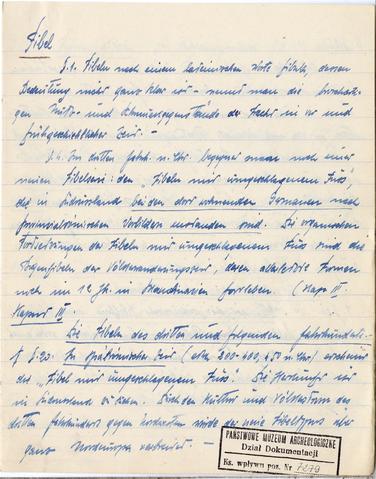 Fibel
S.1. Fibeln nach einem lateinischen Worte fibula, dessen
Bedeutung nicht ganz klar ist - nennt man die
Nutz- und Schmuckgegenstände der Tracht in vor und
frühgeschichtlicher Zeit. -
S.4. Im dritten Jahrh. n. Chr. begegnet man noch einer
neuen Fibelserie: den "Fibeln mit umgeschlagenem Fuss",
die in Südrussland bei den dort wohnenden Germanen nach
provinzialrömischen Vorbildern entstanden sind. Die organischen
Fortsetzungen der Fibeln mit umgeschlagenem Fuss sind die
Bogenfibeln der Völkerwanderungszeit, deren Formen
noch im 12 Jh. in Skandinavien fortleben. (Kapt III
III
Die Fibeln des dritten und folgenden Jahrhunderts.
S.93. In Zeit (etwa 200-400, 450 n. Chr) erscheint
die "Fibel mit umgeschlagenem Fuss". Die Herkunft ist
in Südrussland zu suchen. Durch den Kultur und Völkerstrom des
dritten Jahrhunderts gegen Nordwesten wurde der neue Fibeltypus über
ganz Nordeuropa verbreitet. -
PAŃSTWOWE MUZEUM ARCHEOLOGICZNE
Dział Dokumentacji
Ks. wpływu poz. Nr